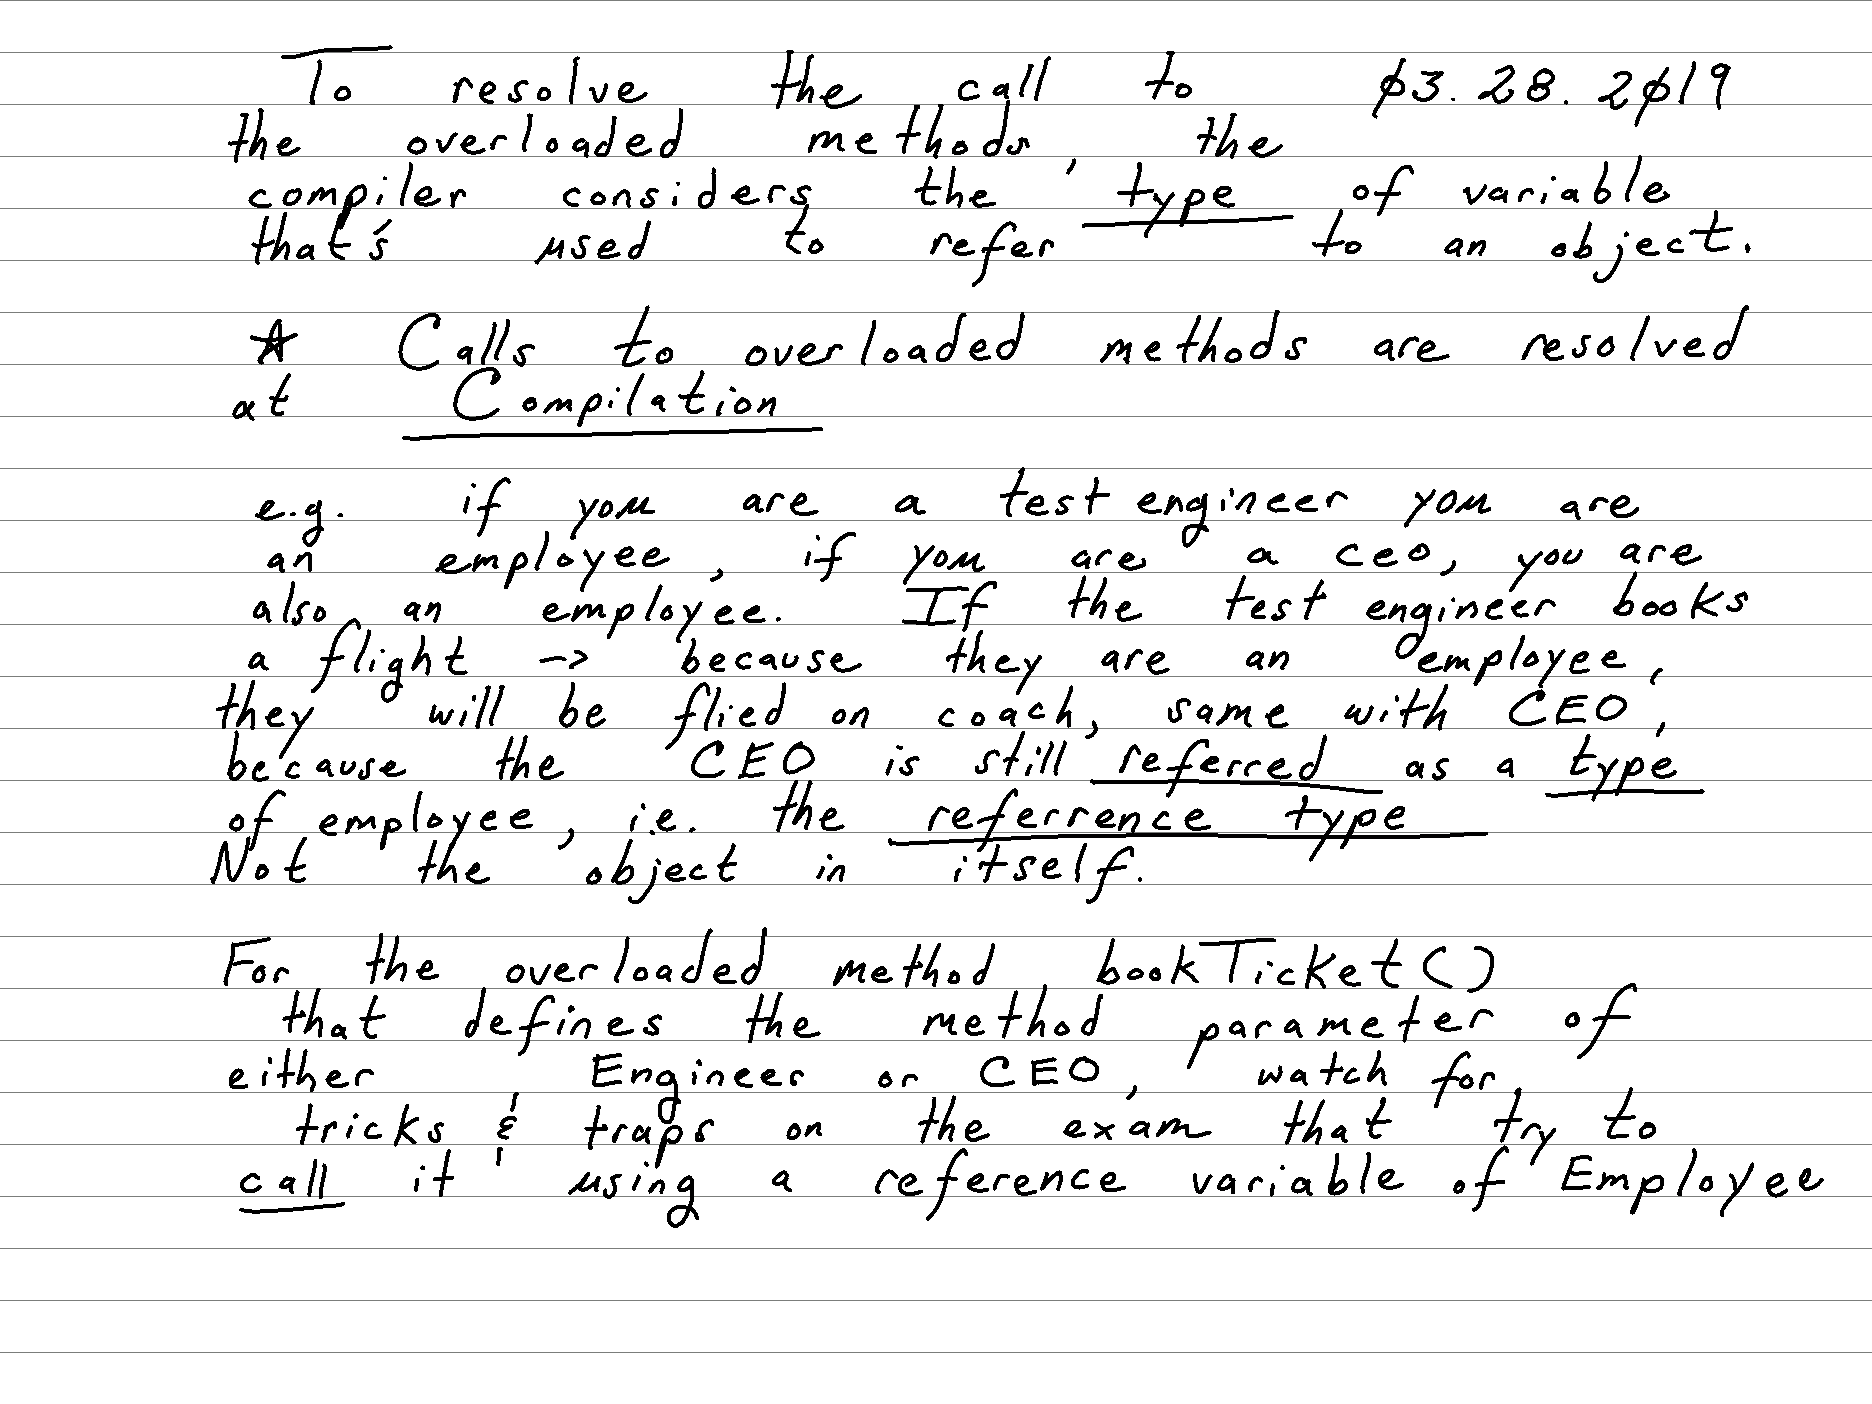 To resolve the call to 03.28.2019
the overloaded methods, the
compiler considers the type of variable
that's used to refer to an object.
☆ Calls to overloaded methods are resolved
at Compilation
e.g. if you are a test engineer you are
an employee, if you are a ceo, you are
also an employee. If the test engineer books
a flight -> because they are an employee,
they will be flied on coach, same with CEO,
because the CEO is still referred as a type
of employee, i.e. the referrence type
Not the object in itself.
For the overloaded method bookTicket()
that defines the method parameter of
either Engineer or CEO, watch for
tricks & traps on the exam that try to
call it using a reference variable of Employee